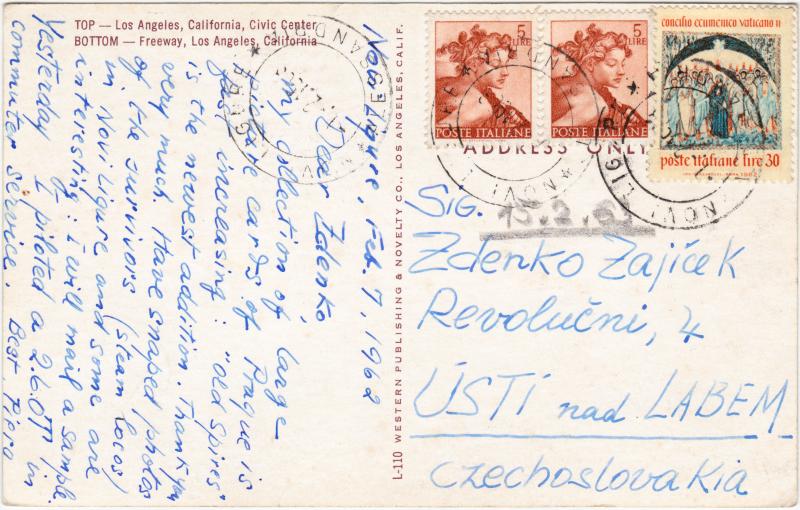 TOP — Los Angeles, California, Civic Center
BOTTOM — Freeway, Los Angeles, California
Novi Ligure, Feb. 7, 1962
Dear Zdenko,
my collection of large
picture cards of Prague is
fast increasing: "old spires"
is the newest addition. Thank you
very much. Have snaped photos
of the survivors (steam locos)
in Novi Ligure and some are
interesting: I will mail a sample.
Yesterday I piloted a 2.6.0T in
commuter service. Best, Piero
L-110 WESTERN PUBLISHING & NOVELTY CO., LOS ANGELES, CALIF.
5
LIRE
POSTE ITALIANE
5
LIRE
POSTE ITALIANE
concilio ecumenico vaticano II
poste italiane lire 30
ADDRESS ONLY
NOVI LIGURE
Sig.
Zdenko Zajíček
Revoluční, 4
ÚSTÍ nad LABEM
Czechoslovakia